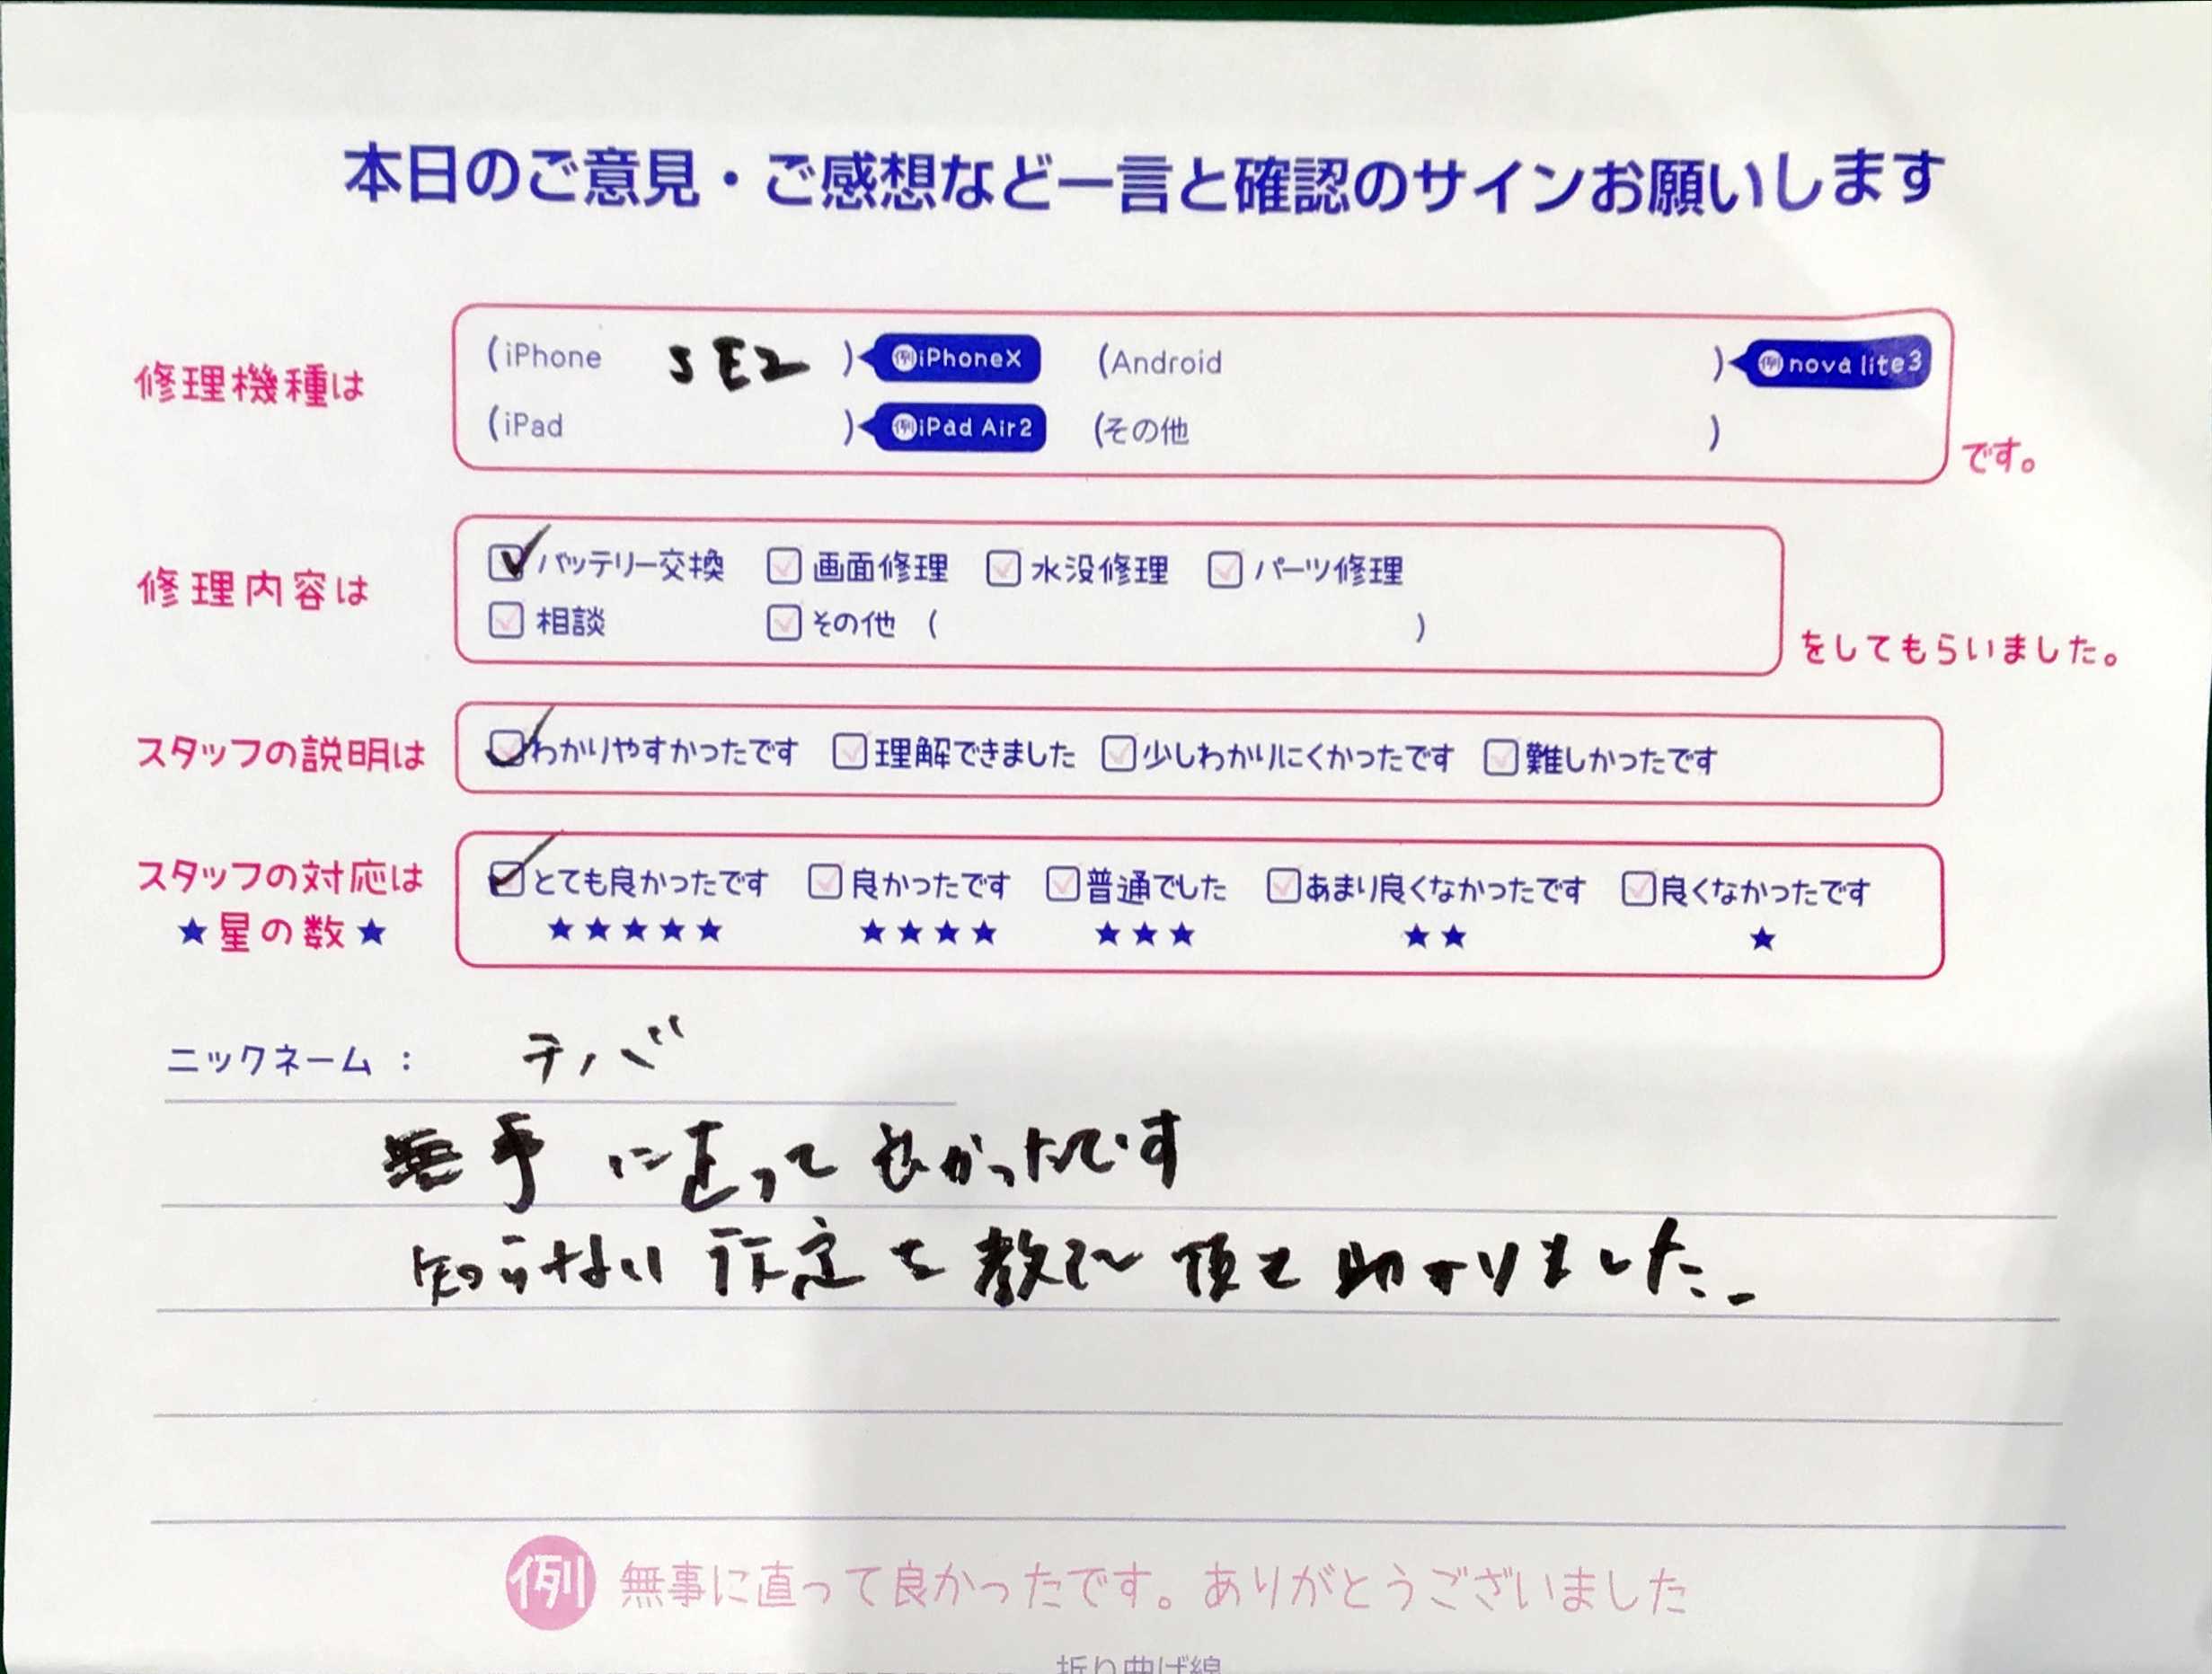 本日のご意見・ご感想など一言と確認のサインお願いします
修理機種は
(iPhone SE2 ) 例iPhoneX (Android ) 例nova lite3
(iPad ) 例iPad Air2 (その他 )
です。
修理内容は
バッテリー交換 画面修理 水没修理 パーツ修理
相談 その他 ( )
をしてもらいました。
スタッフの説明は
わかりやすかったです 理解できました 少しわかりにくかったです 難しかったです
スタッフの対応は
★星の数★
とても良かったです 良かったです 普通でした あまり良くなかったです 良くなかったです
★★★★★ ★★★★ ★★★ ★★ ★
ニックネーム : テハバ
無事に直って良かったです
知らない設定を教えて頂き助かりました。
例 無事に直って良かったです。ありがとうございました
折り曲げ線